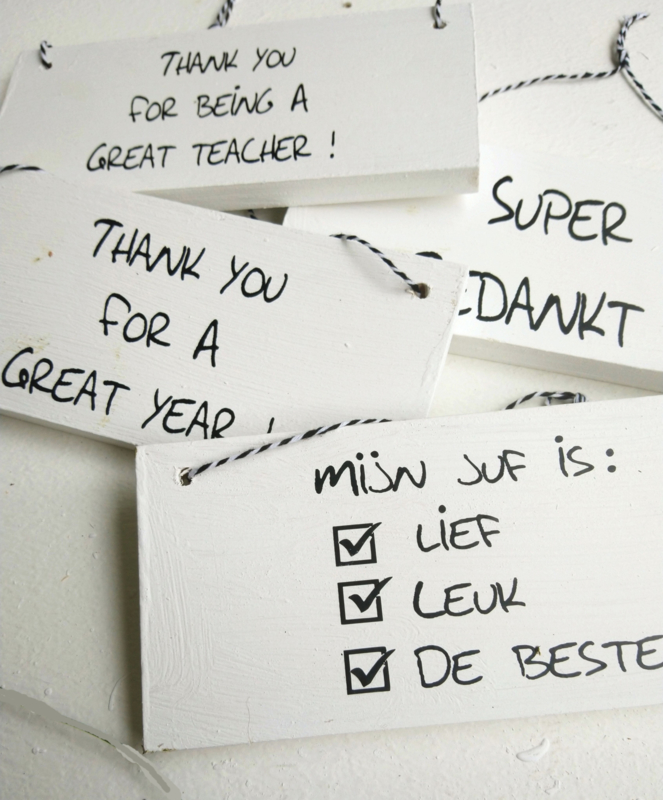 THANK YOU
FOR BEING A
GREAT TEACHER !
SUPER
EDANKT
THANK YOU
FOR A
GREAT YEAR !
mijn JUF is:
☑ LIEF
☑ LEUK
☑ DE BESTE